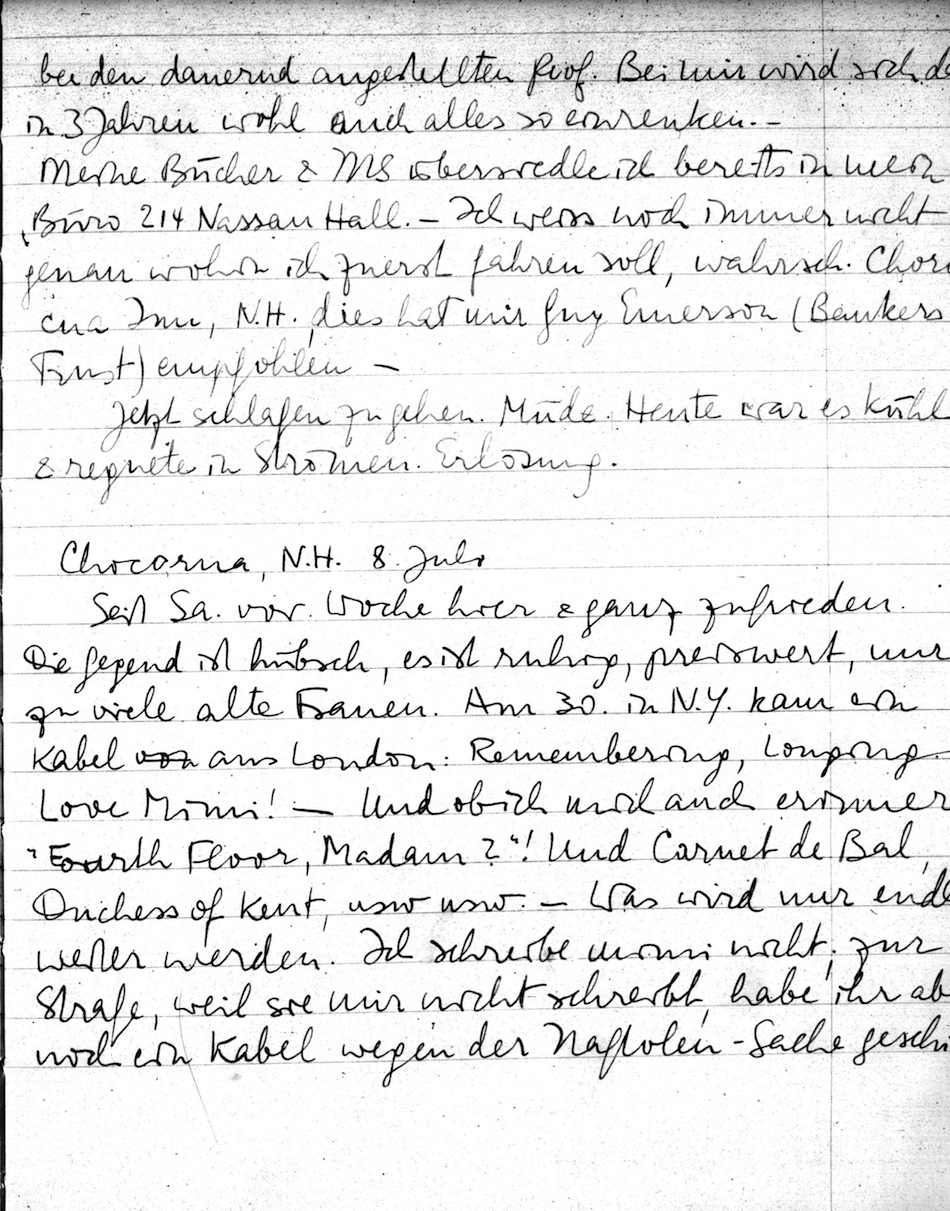 bei den dauernd angestellten Prof. Bei mir wird sich da
in 3 Jahren wohl auch alles so einrenken. –
Meine Bücher & MS übersiedle ich bereits in mein
Büro 214 Nassau Hall. – Ich weiss noch immer nicht
genau wohin ich zuerst fahren soll, wahrsch. Choco
cua Inn, N.H. dies hat mir Guy Emerson (Bankers
Trust) empfohlen –
Jetzt schlafen zu gehen. Müde. Heute war es kühl
& regnete in Strömen. Erlösung.
Chocorua, N.H. 8. Juli
Seit Sa. vor. Woche hier & ganz zufrieden.
Die Gegend ist hübsch, es ist ruhig, preiswert, nur
zu viele alte Frauen. Am 30. in N.Y. kam ein
Kabel von aus London: Remembering, Longing.
Love Mimi! – Und ob ich mich auch erinner
"Fourth Floor, Madam?"! Und Carnet de Bal,
Duchess of Kent, usw usw. – Was wird nur
weiter werden. Ich schreibe Mimi nicht, zur
Strafe, weil sie mir nicht schreibt, habe ihr ab
noch ein Kabel wegen der -Sache geschi